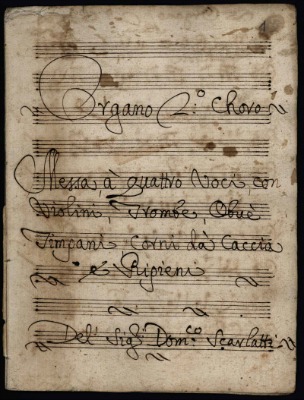 Organo 2.º Choro
Messa à quattro Voci con
Violini, Trombe, Obuè
Timpani Corni dà Caccia
è Ripieni
Del Sigr. Domco. Scarlatti